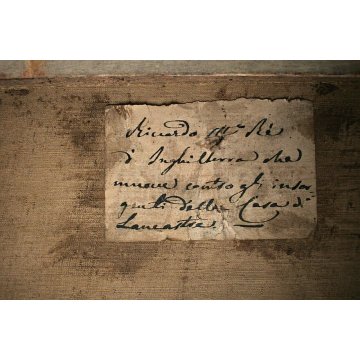 Riccardo III.º Rè
d'Inghilterra che
muove contro gli insor
genti della Casa di
Lancastre.